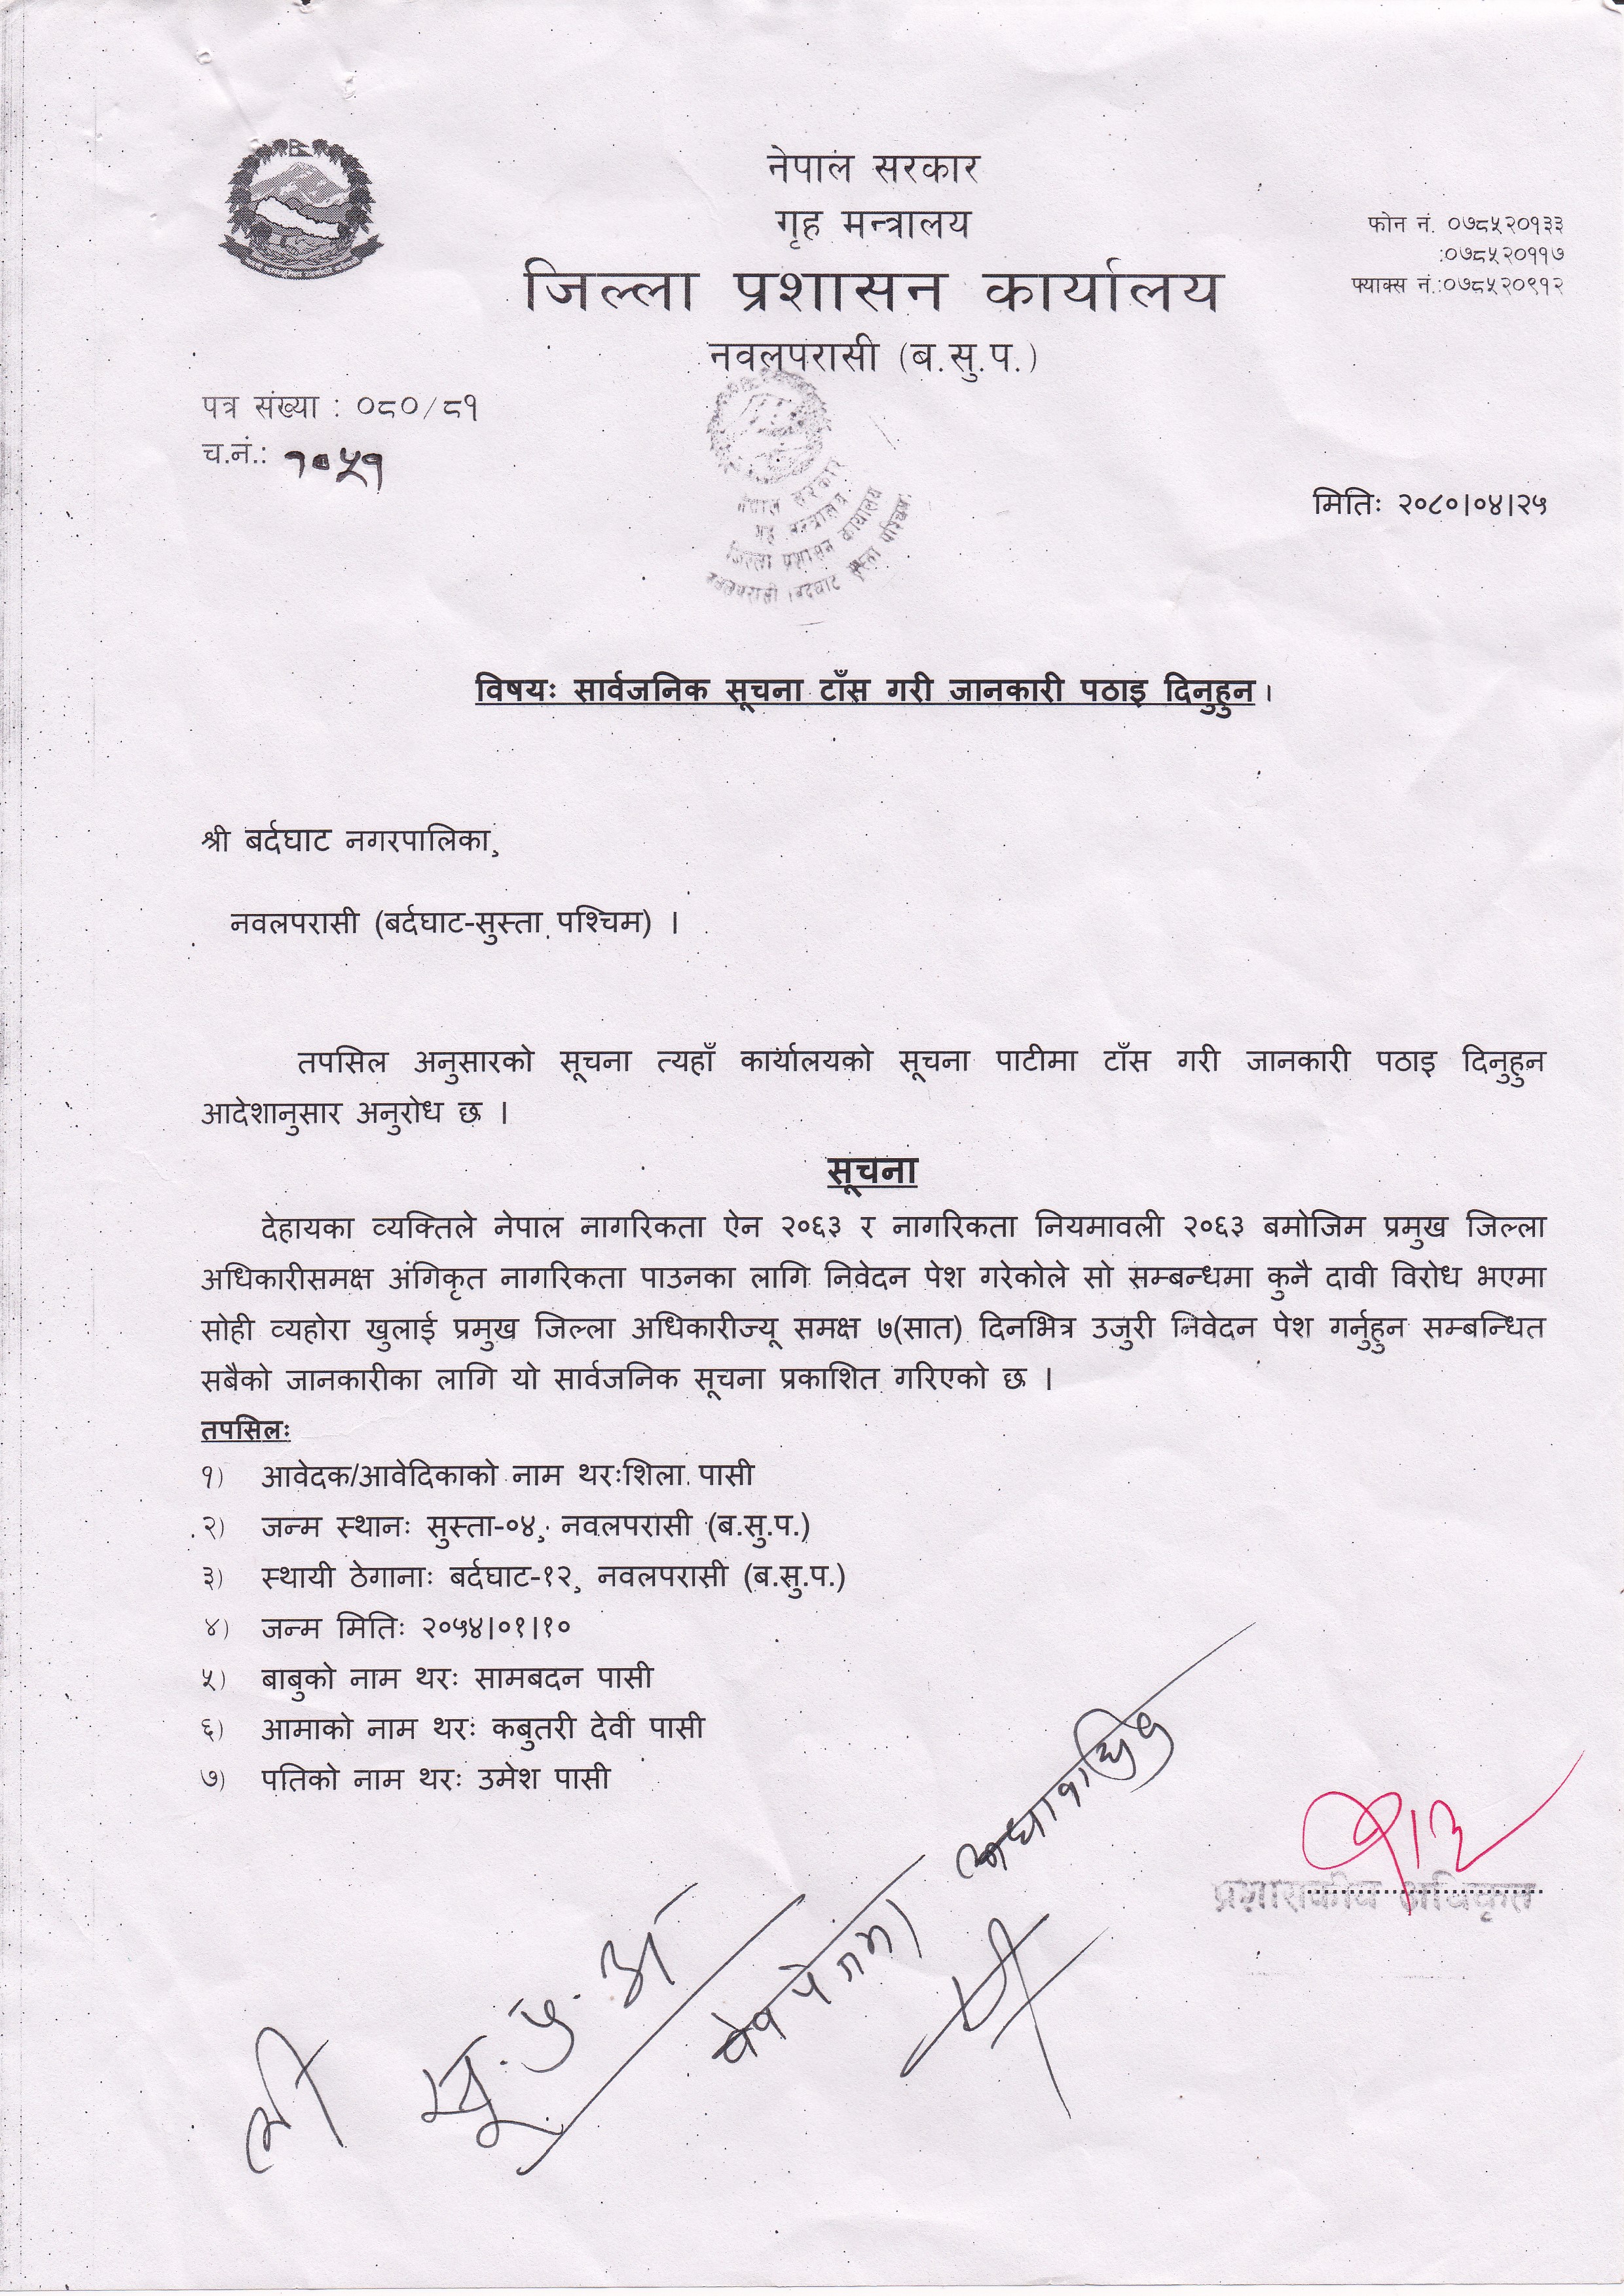 नेपाल सरकार
गृह मन्त्रालय
जिल्ला प्रशासन कार्यालय
नवलपरासी (ब.सु.प.)
फोन नं. ०७८५२०१३३
:०७८५२०११७
फ्याक्स नं.:०७८५२०९१२
पत्र संख्या : ०८०/८१
च.नं.: १०५१
नेपाल सरकार
गृह मन्त्रालय
जिल्ला प्रशासन कार्यालय
नवलपरासी (बर्दघाट सुस्ता पश्चिम)
मितिः २०८०|०४|२५
विषयः सार्वजनिक सूचना टाँस गरी जानकारी पठाइ दिनुहुन।
श्री बर्दघाट नगरपालिका,
नवलपरासी (बर्दघाट-सुस्ता पश्चिम) ।
तपसिल अनुसारको सूचना त्यहाँ कार्यालयको सूचना पाटीमा टाँस गरी जानकारी पठाइ दिनुहुन
आदेशानुसार अनुरोध छ ।
सूचना
देहायका व्यक्तिले नेपाल नागरिकता ऐन २०६३ र नागरिकता नियमावली २०६३ बमोजिम प्रमुख जिल्ला
अधिकारीसमक्ष अंगिकृत नागरिकता पाउनका लागि निवेदन पेश गरेकोले सो सम्बन्धमा कुनै दावी विरोध भएमा
सोही व्यहोरा खुलाई प्रमुख जिल्ला अधिकारीज्यू समक्ष ७(सात) दिनभित्र उजुरी निवेदन पेश गर्नुहुन सम्बन्धित
सबैको जानकारीका लागि यो सार्वजनिक सूचना प्रकाशित गरिएको छ ।
तपसिलः
१) आवेदक/आवेदिकाको नाम थरःशिला पासी
२) जन्म स्थानः सुस्ता-०४, नवलपरासी (ब.सु.प.)
३) स्थायी ठेगानाः बर्दघाट-१२, नवलपरासी (ब.सु.प.)
४) जन्म मितिः २०५४|०१|१०
५) बाबुको नाम थरः सामबदन पासी
६) आमाको नाम थरः कबुतरी देवी पासी
७) पतिको नाम थरः उमेश पासी
प्रशासकीय अधिकृत
श्री सू.प्र.अ